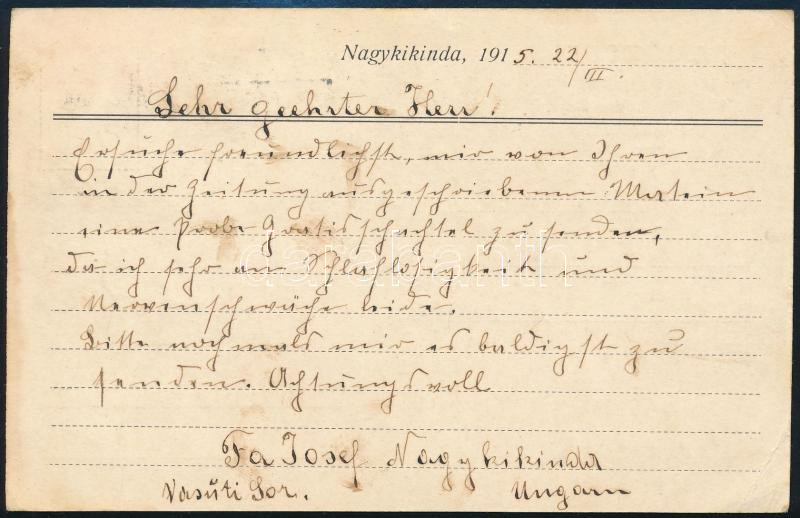 Nagykikinda, 1915. 22/III.
Sehr geehrter Herr!
Ersuche freundlichst, mir von Ihren
in der Zeitung ausgeschriebenen
eine Probe Gratisschachtel zu senden,
da ich sehr an Schlaflosigkeit und
Nervenschwäche leide.
Bitte nochmals mir es baldigst zu
senden. Achtungsvoll
Fa Josef Nagykikinda
Vasúti Sor. Ungarn
darabanth